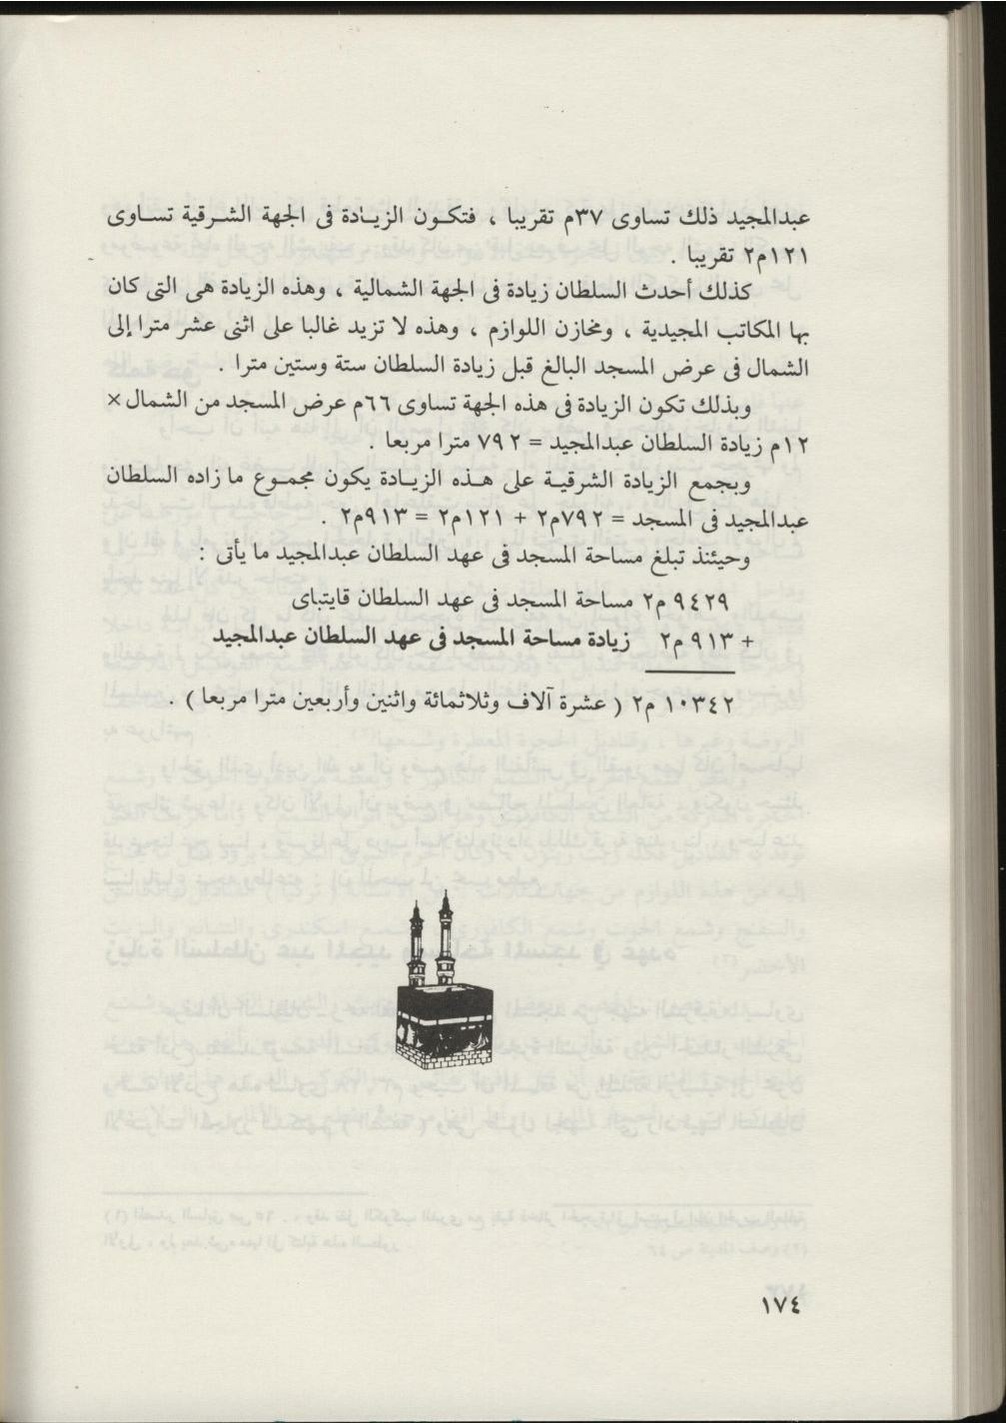 عبدالمجيد ذلك تساوى ٣٧م تقريبا ، فتكـون الزيـادة فى الجهة الشـرقية تسـاوى
١٢١م٢ تقريبا .
كذلك أحدث السلطان زيادة فى الجهة الشمالية ، وهذه الزيادة هى التى كان
بها المكاتب المجيدية ، ومخازن اللوازم ، وهذه لا تزيد غالبا على اثنى عشر مترا إلى
الشمال فى عرض المسجد البالغ قبل زيادة السلطان ستة وستين مترا .
وبذلك تكون الزيادة فى هذه الجهة تساوى ٦٦م عرض المسجد من الشمال ×
١٢م زيادة السلطان عبدالمجيد = ٧٩٢ مترا مربعا .
وبجمع الزيادة الشرقيـة على هـذه الزيـادة يكون مجمـوع ما زاده السلطان
عبدالمجيد فى المسجد = ٧٩٢م٢ + ١٢١م٢ = ٩١٣م٢ .
وحيئنذ تبلغ مساحة المسجد فى عهد السلطان عبدالمجيد ما يأتى :
٩٤٢٩ م٢ مساحة المسجد فى عهد السلطان قايتباى
+ ٩١٣ م٢ زيادة مساحة المسجد فى عهد السلطان عبدالمجيد
١٠٣٤٢ م٢ ( عشرة آلاف وثلاثمائة واثنين وأربعين مترا مربعا ) .
١٧٤